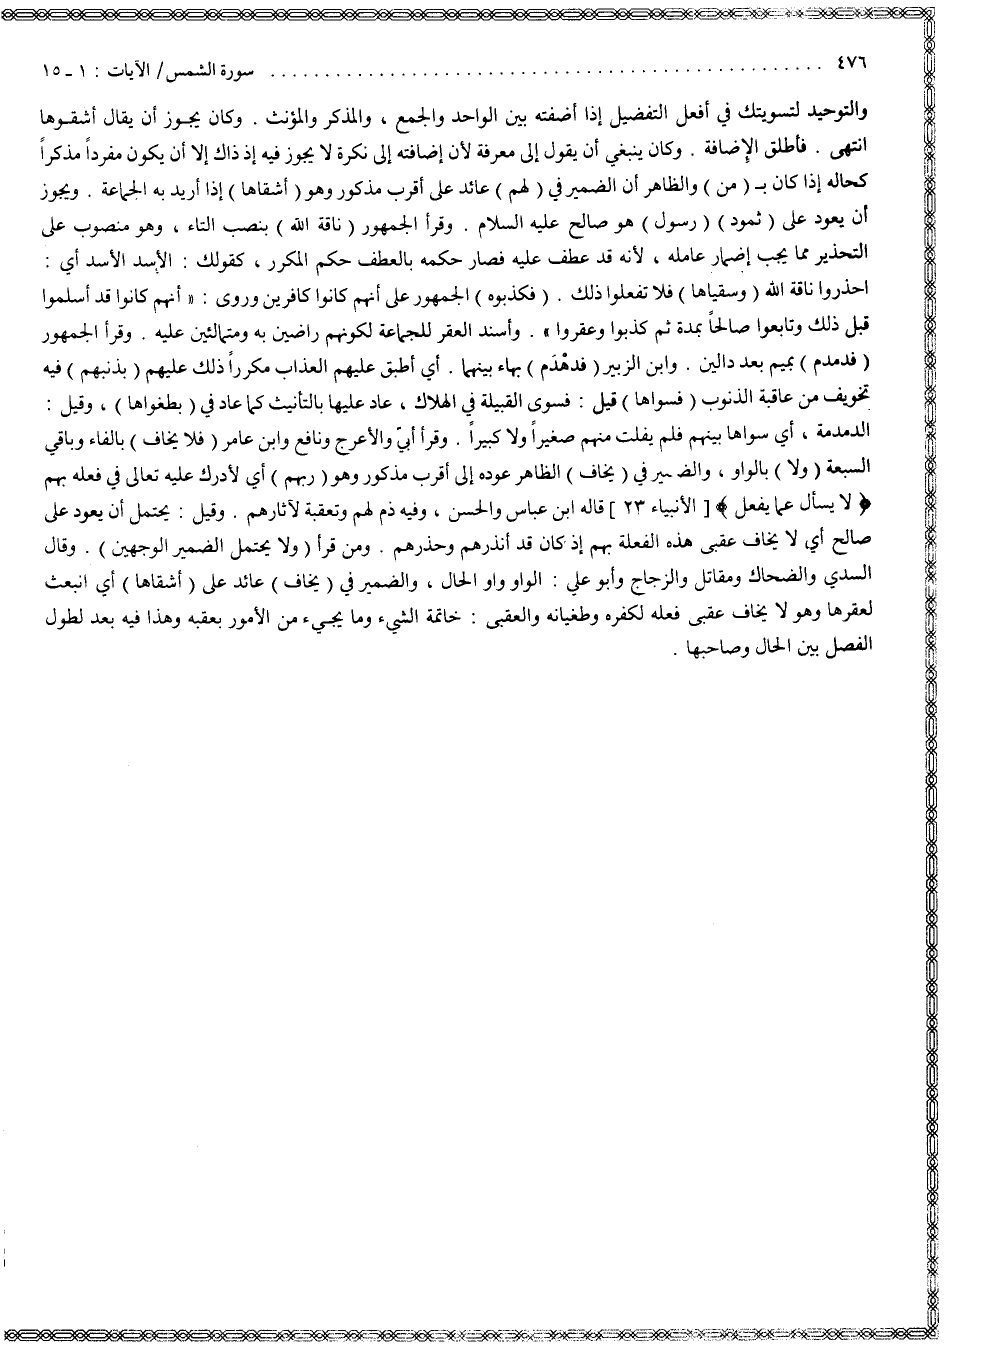 ٤٧٦ ........................................ سورة الشمس / الآيات : ١ ـ ١٥
والتوحيد لتسويتك في أفعل التفضيل إذا أضفته بين الواحد والجمع ، والمذكر والمؤنث . وكان يجوز أن يقال أشقوها
انتهى . فأطلق الإضافة . وكان ينبغي أن يقول إلى معرفة لأن إضافته إلى نكرة لا يجوز فيه إذ ذاك إلا أن يكون مفرداً مذكراً
كحاله إذا كان بـ ( من ) والظاهر أن الضمير في ( لهم ) عائد على أقرب مذكور وهو ( أشقاها ) إذا أريد به الجماعة . ويجوز
أن يعود على ( ثمود ) ( رسول ) هو صالح عليه السلام . وقرأ الجمهور ( ناقة الله ) بنصب التاء ، وهو منصوب على
التحذير مما يجب إضمار عامله ، لأنه قد عطف عليه فصار حكمه بالعطف حكم المكرر ، كقولك : الأسد الأسد أي :
احذروا ناقة الله ( وسقياها ) فلا تفعلوا ذلك . ( فكذبوه ) الجمهور على أنهم كانوا كافرين وروى : « أنهم كانوا قد أسلموا
قبل ذلك وتابعوا صالحاً بمدة ثم كذبوا وعقروا » . وأسند العقر للجماعة لكونهم راضين به ومتمالئين عليه . وقرأ الجمهور
( فدمدم ) بميم بعد دالين . وابن الزبير ( فدهْدَم ) بهاء بينهما . أي أطبق عليهم العذاب مكرراً ذلك عليهم ( بذنبهم ) فيه
تخويف من عاقبة الذنوب ( فسواها ) قيل : فسوى القبيلة في الهلاك ، عاد عليها بالتأنيث كما عاد في ( بطغواها ) ، وقيل :
الدمدمة ، أي سواها بينهم فلم يفلت منهم صغيراً ولا كبيراً . وقرأ أبيّ والأعرج ونافع وابن عامر ( فلا يخاف ) بالفاء وباقي
السبعة ( ولا ) بالواو ، والضمير في ( يخاف ) الظاهر عوده إلى أقرب مذكور وهو ( ربهم ) أي لأدرك عليه تعالى في فعله بهم
﴿ لا يسأل عما يفعل ﴾ [ الأنبياء ٢٣ ] قاله ابن عباس والحسن ، وفيه ذم لهم وتعقبة لآثارهم . وقيل : يحتمل أن يعود على
صالح أي لا يخاف عقبى هذه الفعلة بهم إذ كان قد أنذرهم وحذرهم . ومن قرأ ( ولا يحتمل الضمير الوجهين ) . وقال
السدي والضحاك ومقاتل والزجاج وأبو علي : الواو واو الحال ، والضمير في ( يخاف ) عائد على ( أشقاها ) أي انبعث
لعقرها وهو لا يخاف عقبى فعله لكفره وطغيانه والعقبى : خاتمة الشيء وما يجيء من الأمور بعقبه وهذا فيه بعد لطول
الفصل بين الحال وصاحبها .